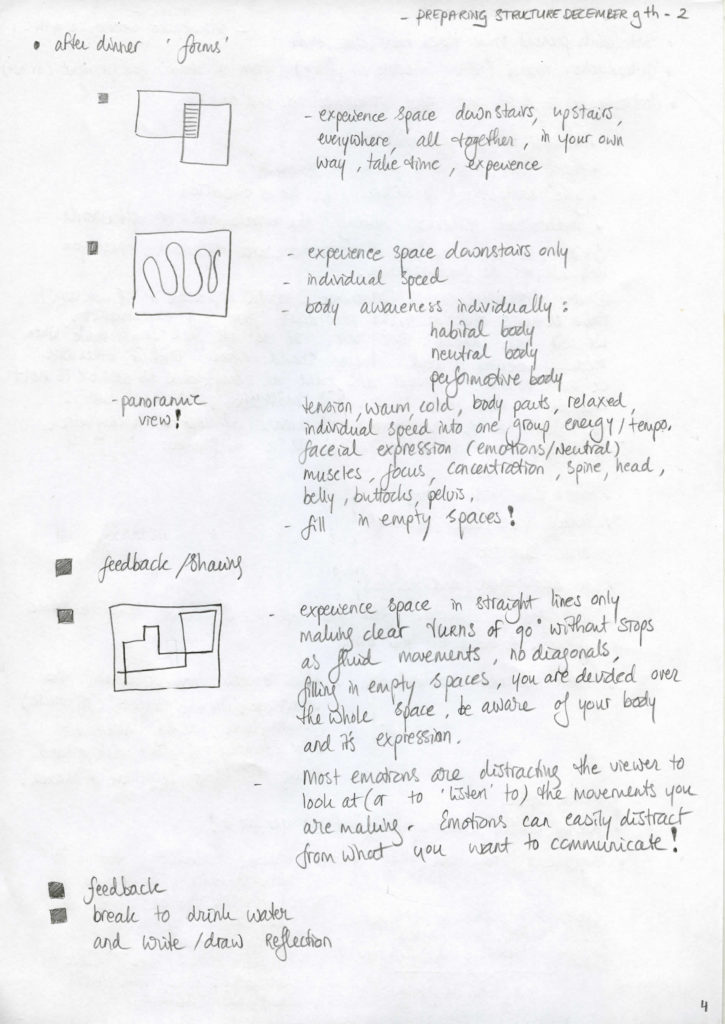 - PREPARING STRUCTURE DECEMBER 9th - 2
• after dinner 'forms'
- experience space downstairs, upstairs,
everywhere, all together, in your own
way, take time, experience
- experience space downstairs only
- individual speed
- body awareness individually:
habital body
neutral body
performative body
- panoramic
view!
tension, warm, cold, body parts, relaxed,
individual speed into one group energy/tempo.
faceial expression (emotions/Neutral)
muscles, focus, concentration, spine, head,
belly, buttocks, pelvis,
- fill in empty spaces!
feedback/Sharing
- experience space in straight lines only
making clear turns of 90° without stops
as fluid movements, no diagonals,
filling in empty spaces, you are devided over
the whole space, be aware of your body
and it's expression.
- Most emotions are distracting the viewer to
look at (or to 'listen' to) the movements you
are making. Emotions can easily distract
from what you want to communicate!
feedback
break to drink water
and write/draw Reflection
4